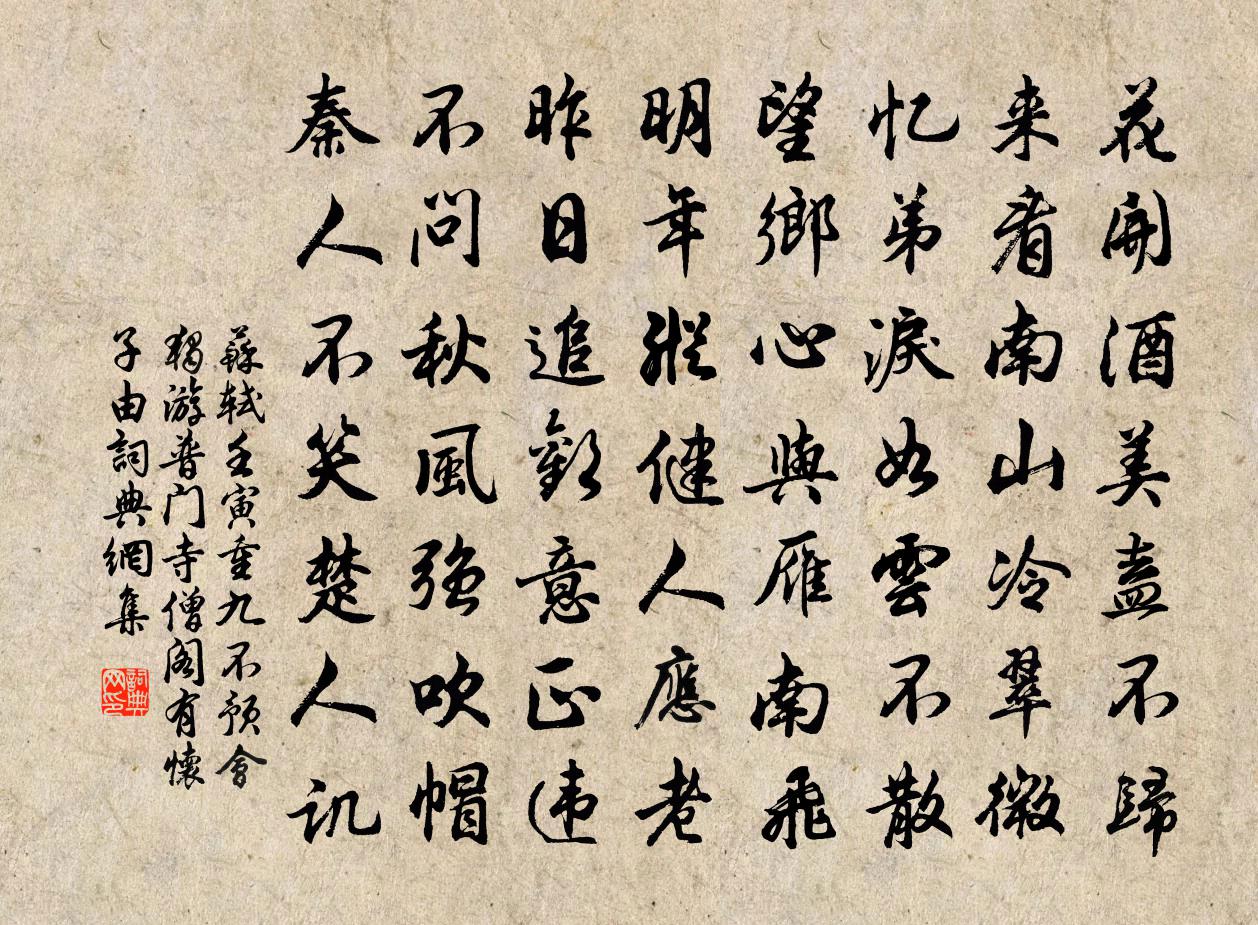 花開酒美盍不歸
来看南山冷翠微
忆弟淚如雲不散
望鄉心與雁南飛
明年縱健人應老
昨日追歡意正违
不問秋風強吹帽
秦人不笑楚人讥
蘇轼壬寅重九不预會
獨游普门寺僧阁有懷
子由詞典網集
詞典网印